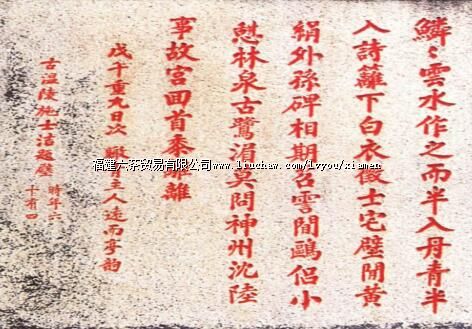 鱗〻雲水作之而半入丹青半
入詩籬下白衣士宅壁間黃
絹外孫碑相期雲間鷗侶小
憇林泉古鷺湄莫問神州沈陸
事故宮回首黍離離
戊午重九日次主人遠而亭韵
古溫陵施士洁題壁 時年六
十有四
福建六茶贸易有限公司www.liuchaw.com/lvyou/xiamen